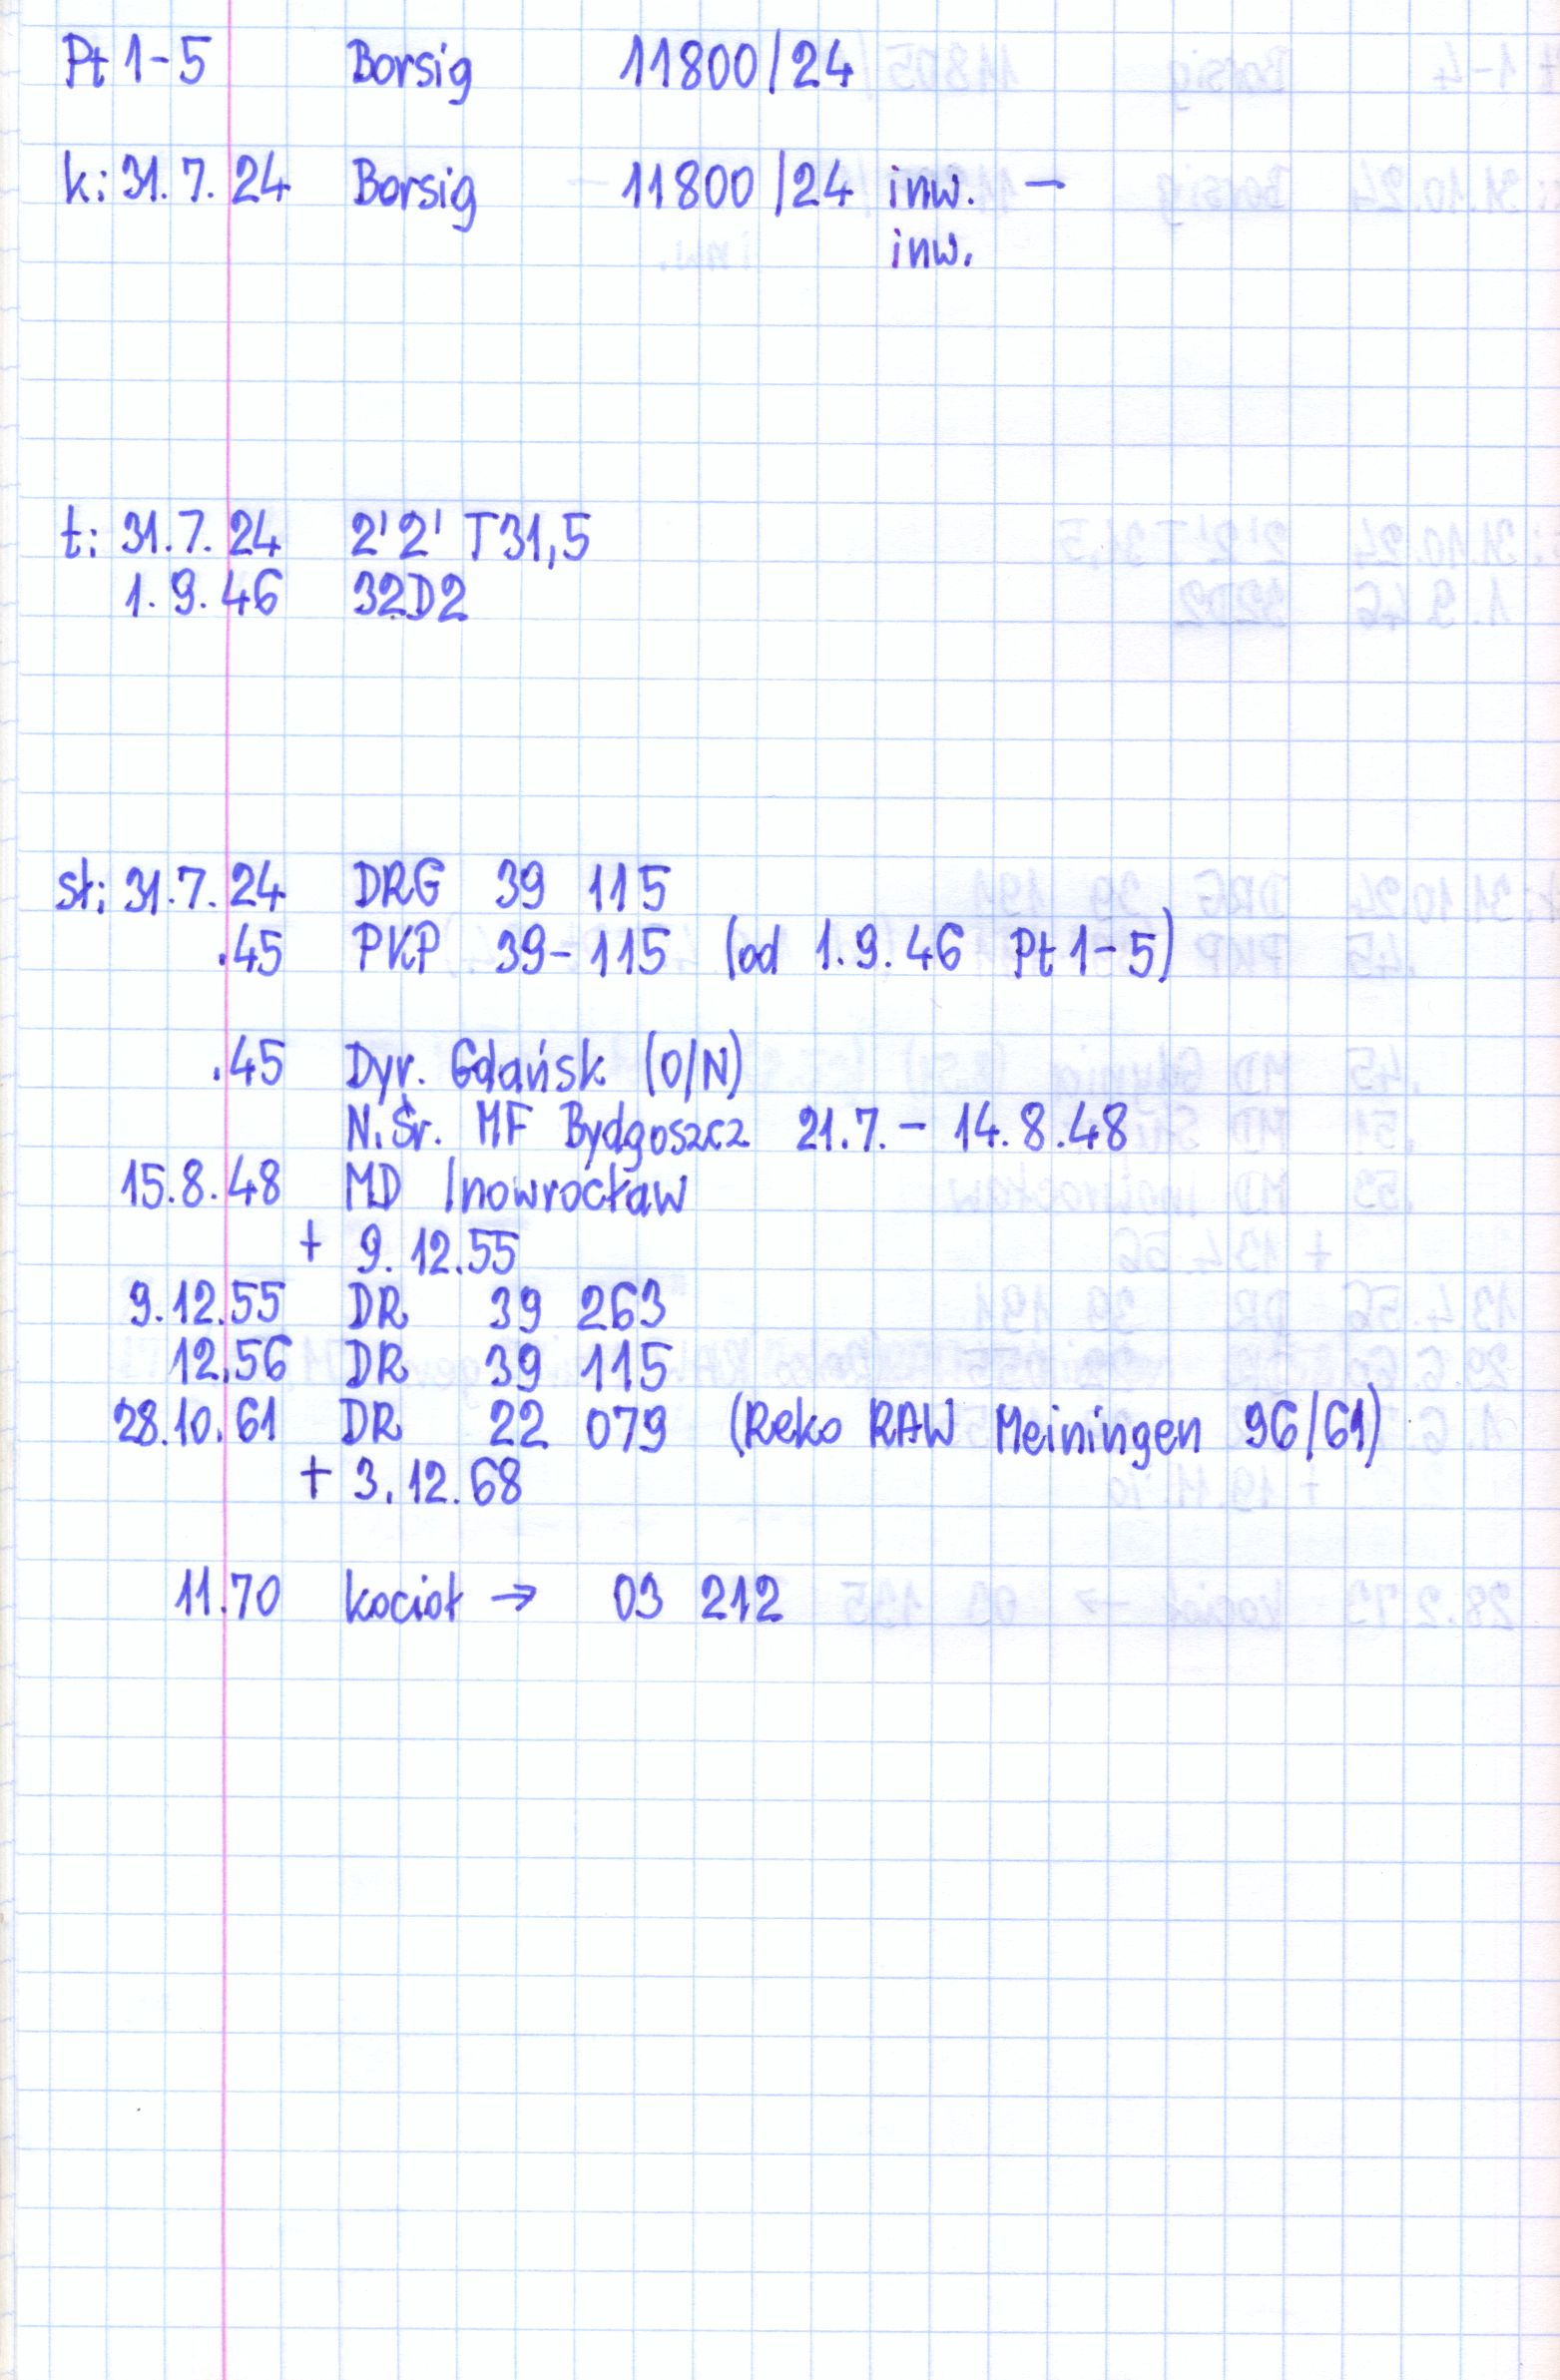 Pt 1-5 Borsig 11800/24
k: 31.7.24 Borsig 11800/24 inw. -
inw.
t: 31.7.24 2'2' T31,5
1.9.46 32D2
st: 31.7.24 DRG 39 115
.45 PKP 39-115 (od 1.9.46 Pt 1-5)
.45 Dyr. Gdańsk (O/N)
N.Śr. MF Bydgoszcz 21.7.- 14.8.48
15.8.48 MD Inowrocław
+ 9.12.55
9.12.55 DR 39 263
12.56 DR 39 115
28.10.61 DR 22 079 (Reko RAW Meiningen 96/61)
+ 3.12.68
11.70 kocioł → 03 212